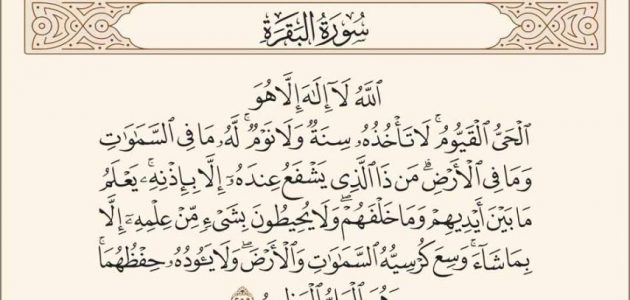 سُورَةُ البَقَرَةِ
اللَّهُ لَآ إِلَـٰهَ إِلَّا هُوَ
الْحَيُّ الْقَيُّومُ ۚ لَا تَأْخُذُهُۥ سِنَةٌ وَلَا نَوْمٌ ۚ لَّهُۥ مَا فِى السَّمَـٰوَٰتِ
وَمَا فِى الْأَرْضِ ۗ مَن ذَا الَّذِى يَشْفَعُ عِندَهُۥٓ إِلَّا بِإِذْنِهِۦ ۚ يَعْلَمُ
مَا بَيْنَ أَيْدِيهِمْ وَمَا خَلْفَهُمْ ۖ وَلَا يُحِيطُونَ بِشَىْءٍ مِّنْ عِلْمِهِۦٓ إِلَّا
بِمَا شَآءَ ۚ وَسِعَ كُرْسِيُّهُ السَّمَـٰوَٰتِ وَالْأَرْضَ ۖ وَلَا يَـُٔودُهُۥ حِفْظُهُمَا ۚ